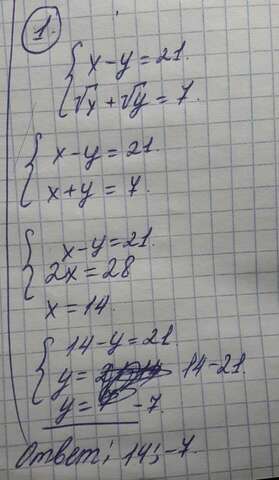 1.
x - y = 21.
√x + √y = 7.
x - y = 21.
x + y = 7.
x - y = 21.
2x = 28
x = 14.
14 - y = 21.
y = 14 - 21.
y = -7.
Ответ: 14; -7.